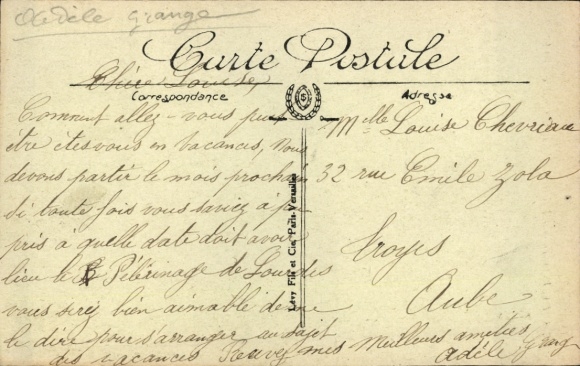 Adèle Grange
Carte Postale
Correspondance
Adresse
Chère Louise,
Comment allez-vous peut
être êtes vous en vacances, Nous
devons partir le mois prochain
si toute fois vous aviez appris
pris à quelle date doit avoir
lieu le Pèlerinage de Lourdes
vous serez bien aimable de me
le dire pour s'arranger au sujet
des vacances Recevez mes meilleures amitiés
Adèle Grange
Melle Louise Chevriau
32 rue Emile Zola
Troyes
Aube
Lévy Fils et Cie, Paris-Versailles